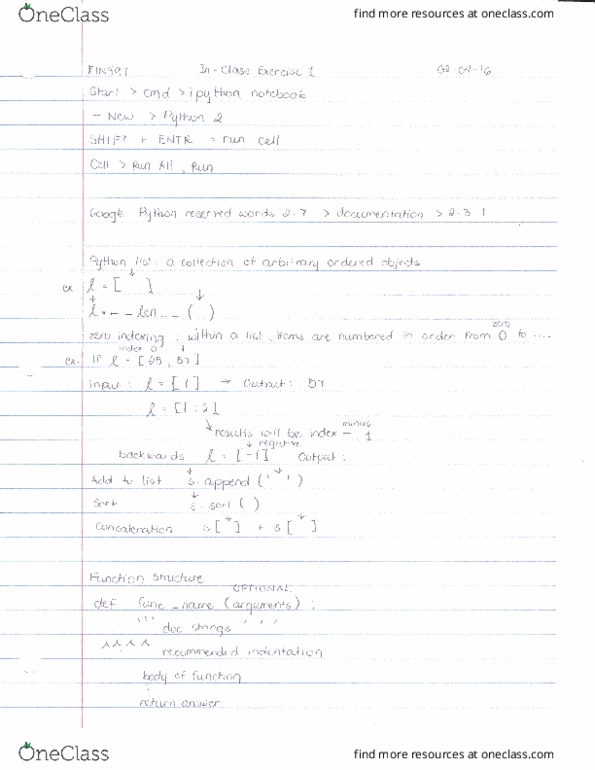 OneClass
find more resources at oneclass.com
In-Class Exercise 1
Start > cmd > ipython notebook
- New > Python 2
SHIFT + ENTR = run cell
Cell > Run All, Run
Google Python reserved words 2.7 > documentation > 2.3.1
Python list: a collection of arbitrary ordered objects
ex l = [ ]
l.__len__()
zero
zero indexing: within a list, items are numbered in order from 0 to ....
index 0
ex. If l = [25, 57]
input: l = [1] → Output: 57
l = [1:2]
minus
results will be index - 1
negative
backwards l = [-1] Output:
Add to list s.append(' ')
Sort s.sort()
Concatenation s[ ] + s[ ]
Function Structure
OPTIONAL
def func_name (arguments):
''' doc strings '''
^^^^ recommended indentation
body of function
return answer
OneClass
find more resources at oneclass.com